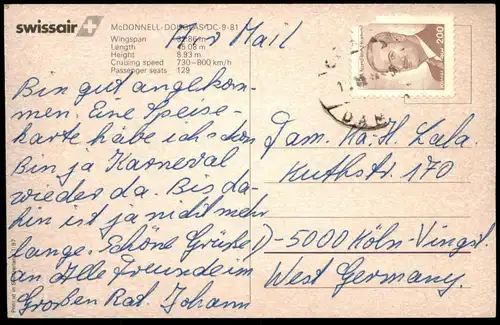 swissair
McDONNELL-DOUGLAS DC-9-81
Wingspan
Length 45.08 m
Height 8.93 m
Cruising speed 730–800 km/h
Passenger seats 129
Air Mail
200
DAM
Bin gut angekom-
men. Eine Speise-
karte habe ich schon
Bin ja Karneval
wieder da. Bis da-
hin ist ja nicht mehr
lange. Schöne Grüße
an Alle Freunde im
Großen Rat. Johann
Fam. Ka. H. Lala.
Kuthstr. 170
D-5000 Köln-Vingst.
West Germany.